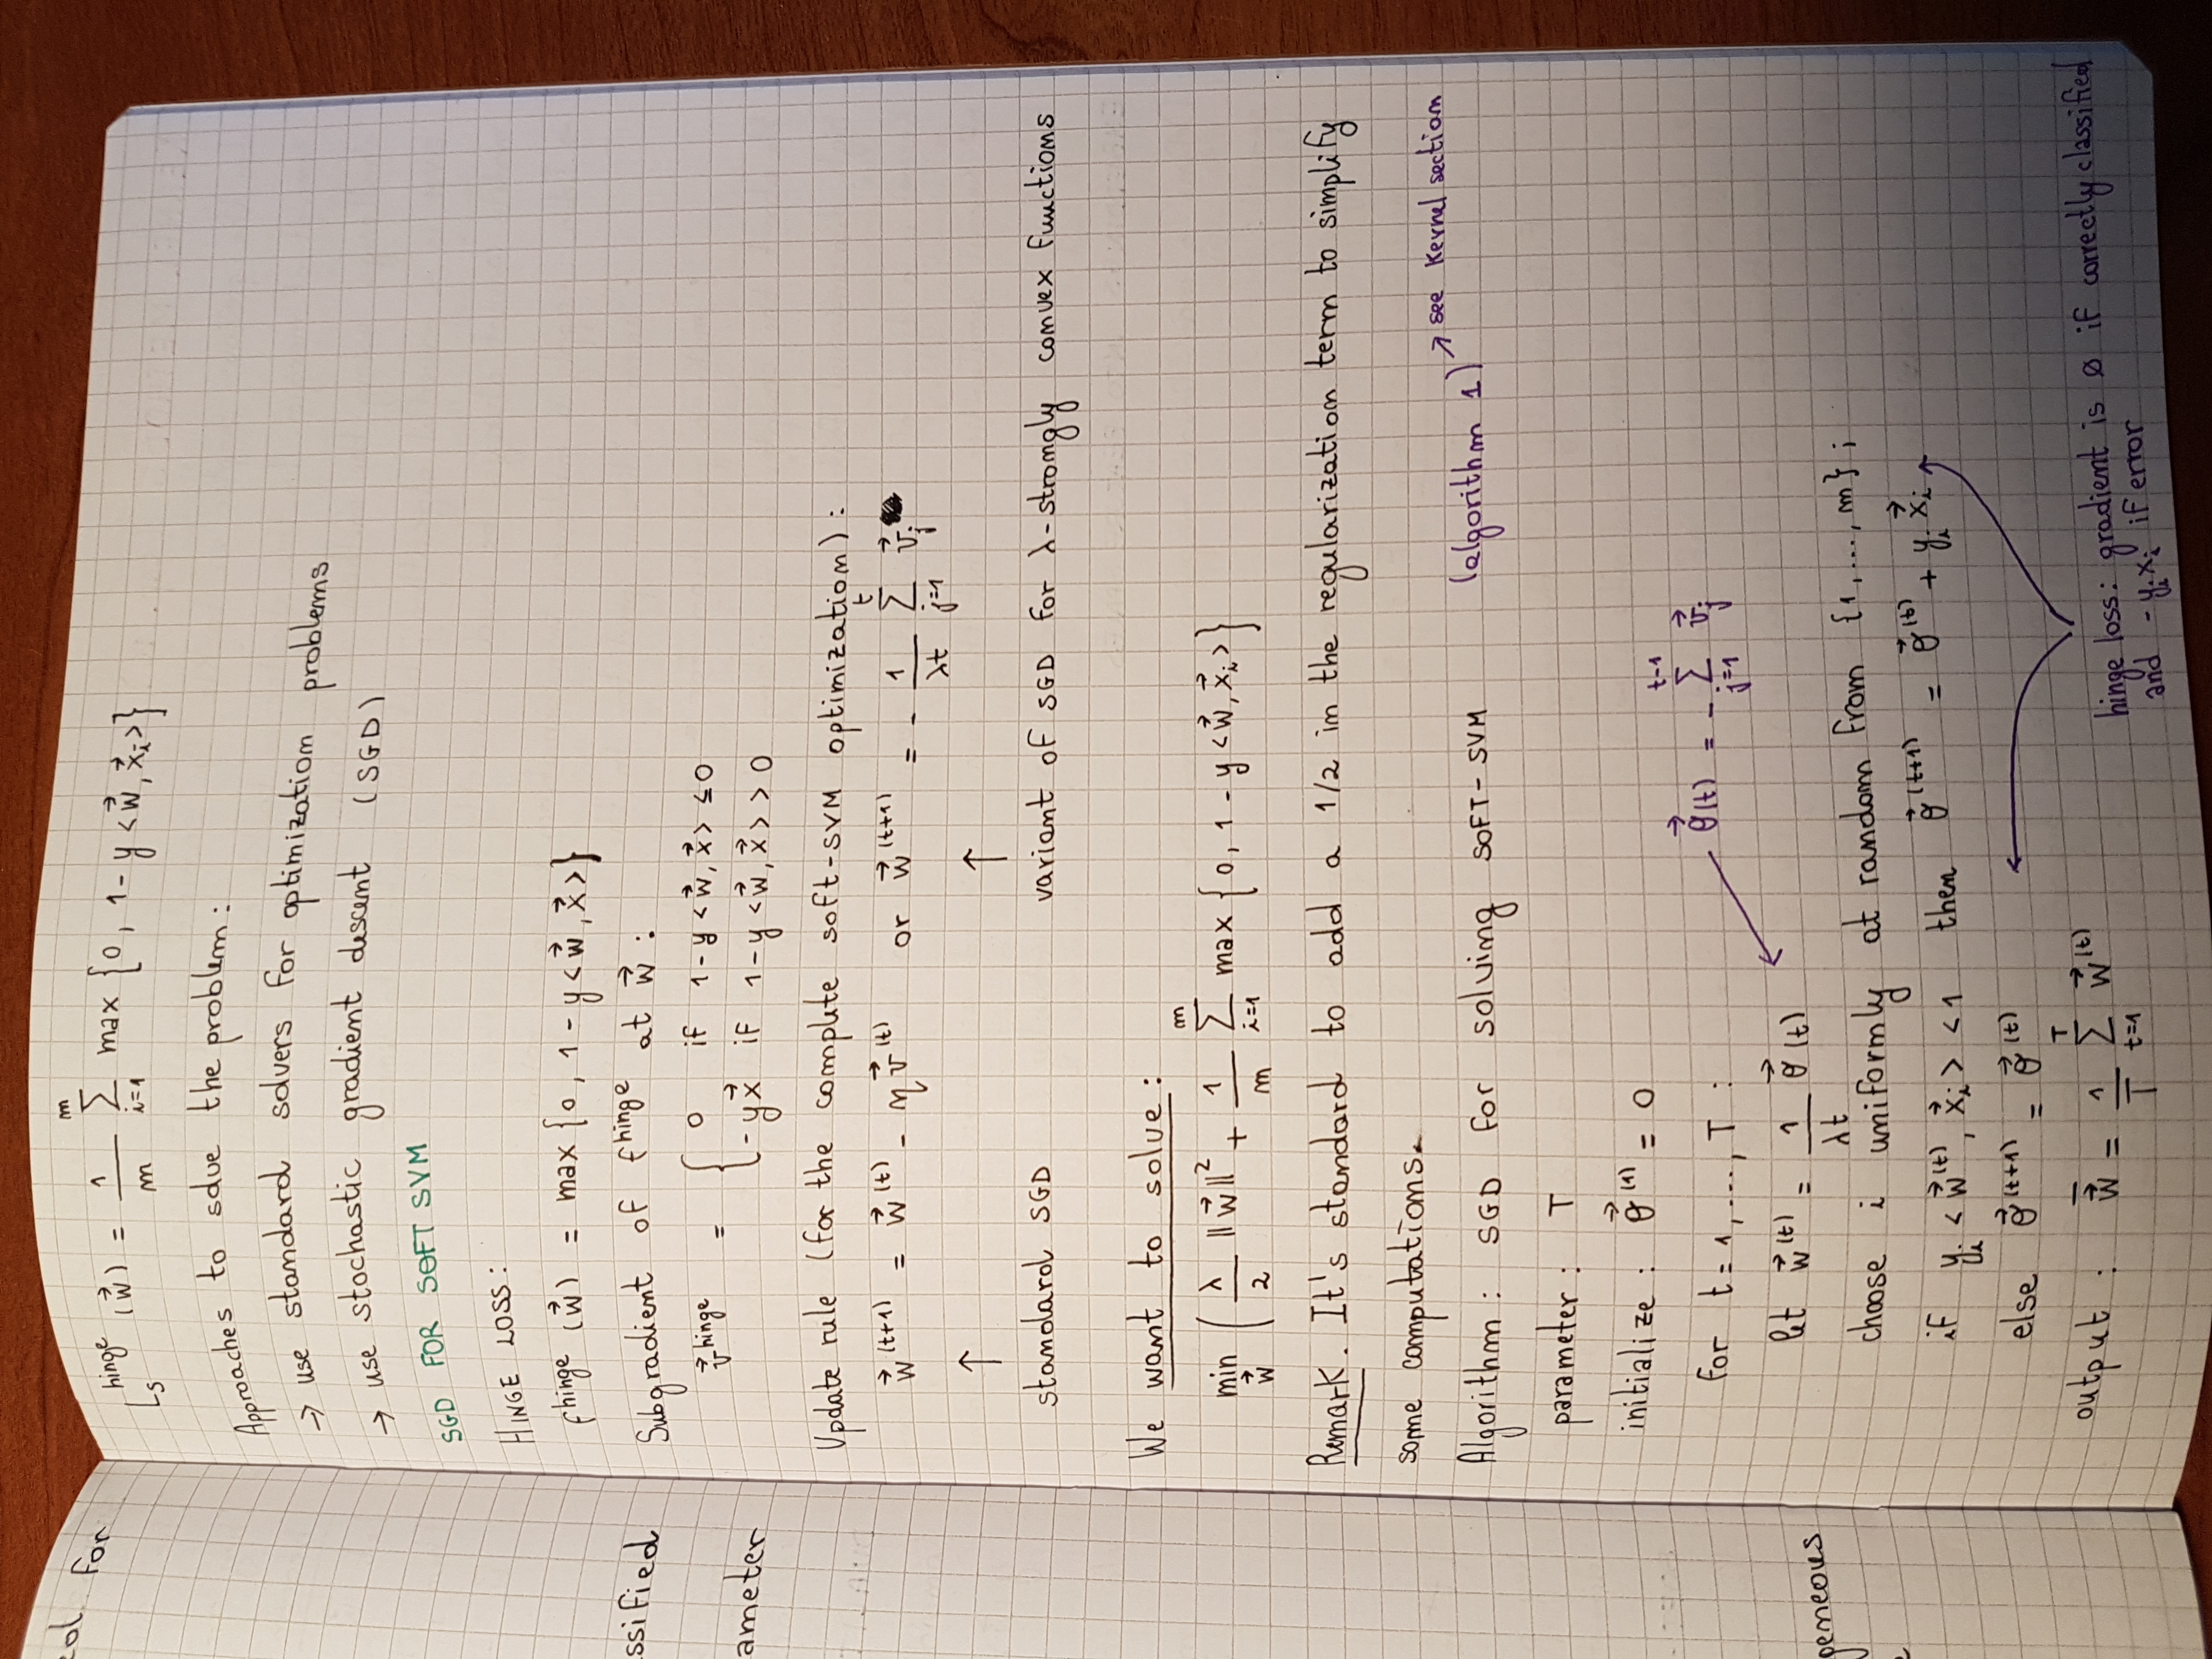 eol for
ssified
ameter
geneous
L_S^hinge (w⃗) = 1/m Σ_{i=1}^{m} max {0, 1 - y <w⃗, x⃗_i>}
Approaches to solve the problem:
→ use standard solvers for optimization problems
→ use stochastic gradient descent (SGD)
SGD FOR SOFT SVM
HINGE LOSS:
f^hinge (w⃗) = max {0, 1 - y <w⃗, x⃗>}
Subgradient of f^hinge at w⃗ :
v⃗^hinge = { 0 if 1 - y <w⃗, x⃗> ≤ 0
-yx⃗ if 1 - y <w⃗, x⃗> > 0
Update rule (for the complete soft-SVM optimization):
w⃗^(t+1) = w⃗^(t) - η v⃗^(t) or w⃗^(t+1) = - 1/λt Σ_{j=1}^{t} v⃗_j
↑ ↑
standard SGD variant of SGD for λ-strongly convex functions
We want to solve:
min_w⃗ ( λ/2 ||w⃗||² + 1/m Σ_{i=1}^{m} max {0, 1 - y <w⃗, x⃗_i>}
Remark. It's standard to add a 1/2 in the regularization term to simplify
some computations.
Algorithm: SGD for solving SOFT-SVM (algorithm 1) ↗ see Kernel section
parameter: T
initialize: θ⃗^(1) = 0
for t = 1, ..., T :
θ⃗(t) = - Σ_{j=1}^{t-1} v⃗_j
let w⃗^(t) = 1/λt θ⃗(t)
choose i uniformly at random from {1, ..., m} ;
if y_i <w⃗^(t), x⃗_i> < 1 then θ⃗^(t+1) = θ⃗^(t) + y_i x⃗_i
else θ⃗^(t+1) = θ⃗^(t)
output : w̄⃗ = 1/T Σ_{t=1}^{T} w⃗^(t)
hinge loss: gradient is ∅ if correctly classified
and -y_i x_i if error